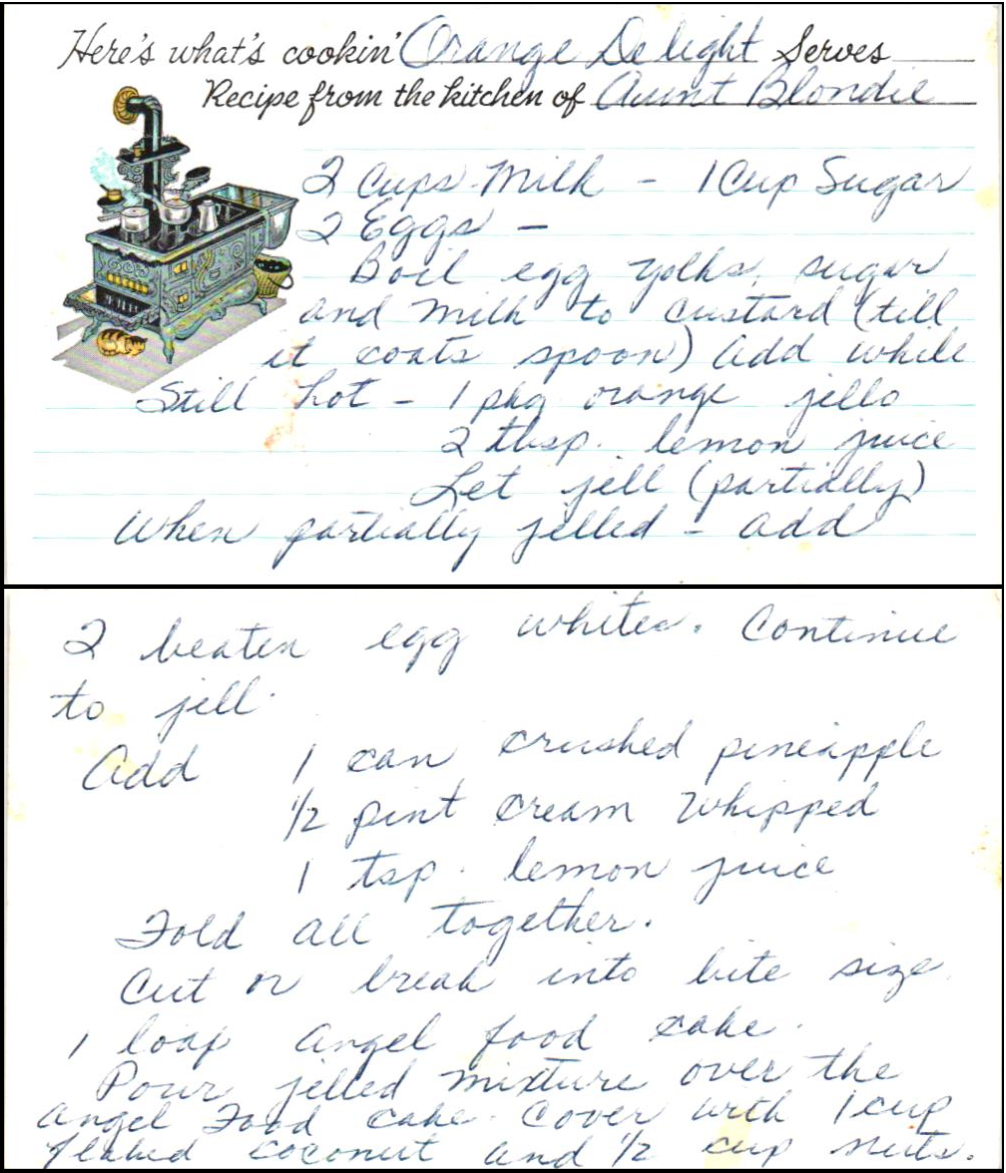 Here's what's cookin' Orange Delight Serves
Recipe from the kitchen of Aunt Blondie
2 Cups Milk - 1 Cup Sugar
2 Eggs -
Boil egg yolks, sugar
and milk to custard (till
it coats spoon) Add while
Still hot - 1 pkg orange jello
2 tbsp. lemon juice
Let jell (partially)
When partially jelled - add
2 beaten egg whites. Continue
to jell.
Add 1 can crushed pineapple
1/2 pint cream whipped
1 tsp. lemon juice
Fold all together.
Cut or break into bite size
1 loaf angel food cake.
Pour jelled mixture over the
angel food cake. Cover with 1 cup
flaked coconut and 1/2 cup nuts.